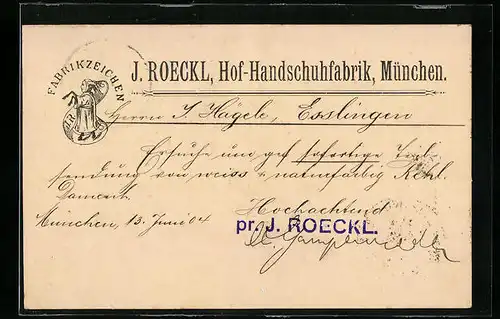 FABRIKZEICHEN
J. ROECKL, Hof-Handschuhfabrik, München.
Herrn J. Hägele, Esslingen
Ersuche um gef sofortige
sendung von weiss naturfarbig
München, 13. Juni 04
Hochachtend
pr. J. ROECKL.